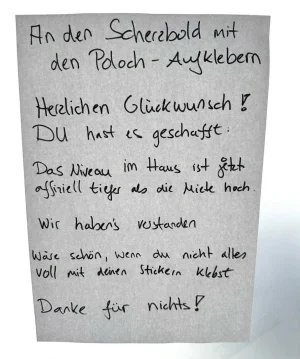 An den Scherzbold mit
den Poloch - Aufklebern
Herzlichen Glückwunsch!
DU hast es geschafft.
Das Niveau im Haus ist jetzt
offiziell tiefer als die Miete hoch.
Wir haben's verstanden
Wäre schön, wenn du nicht alles
voll mit deinen Stickern klebst
Danke für nichts!